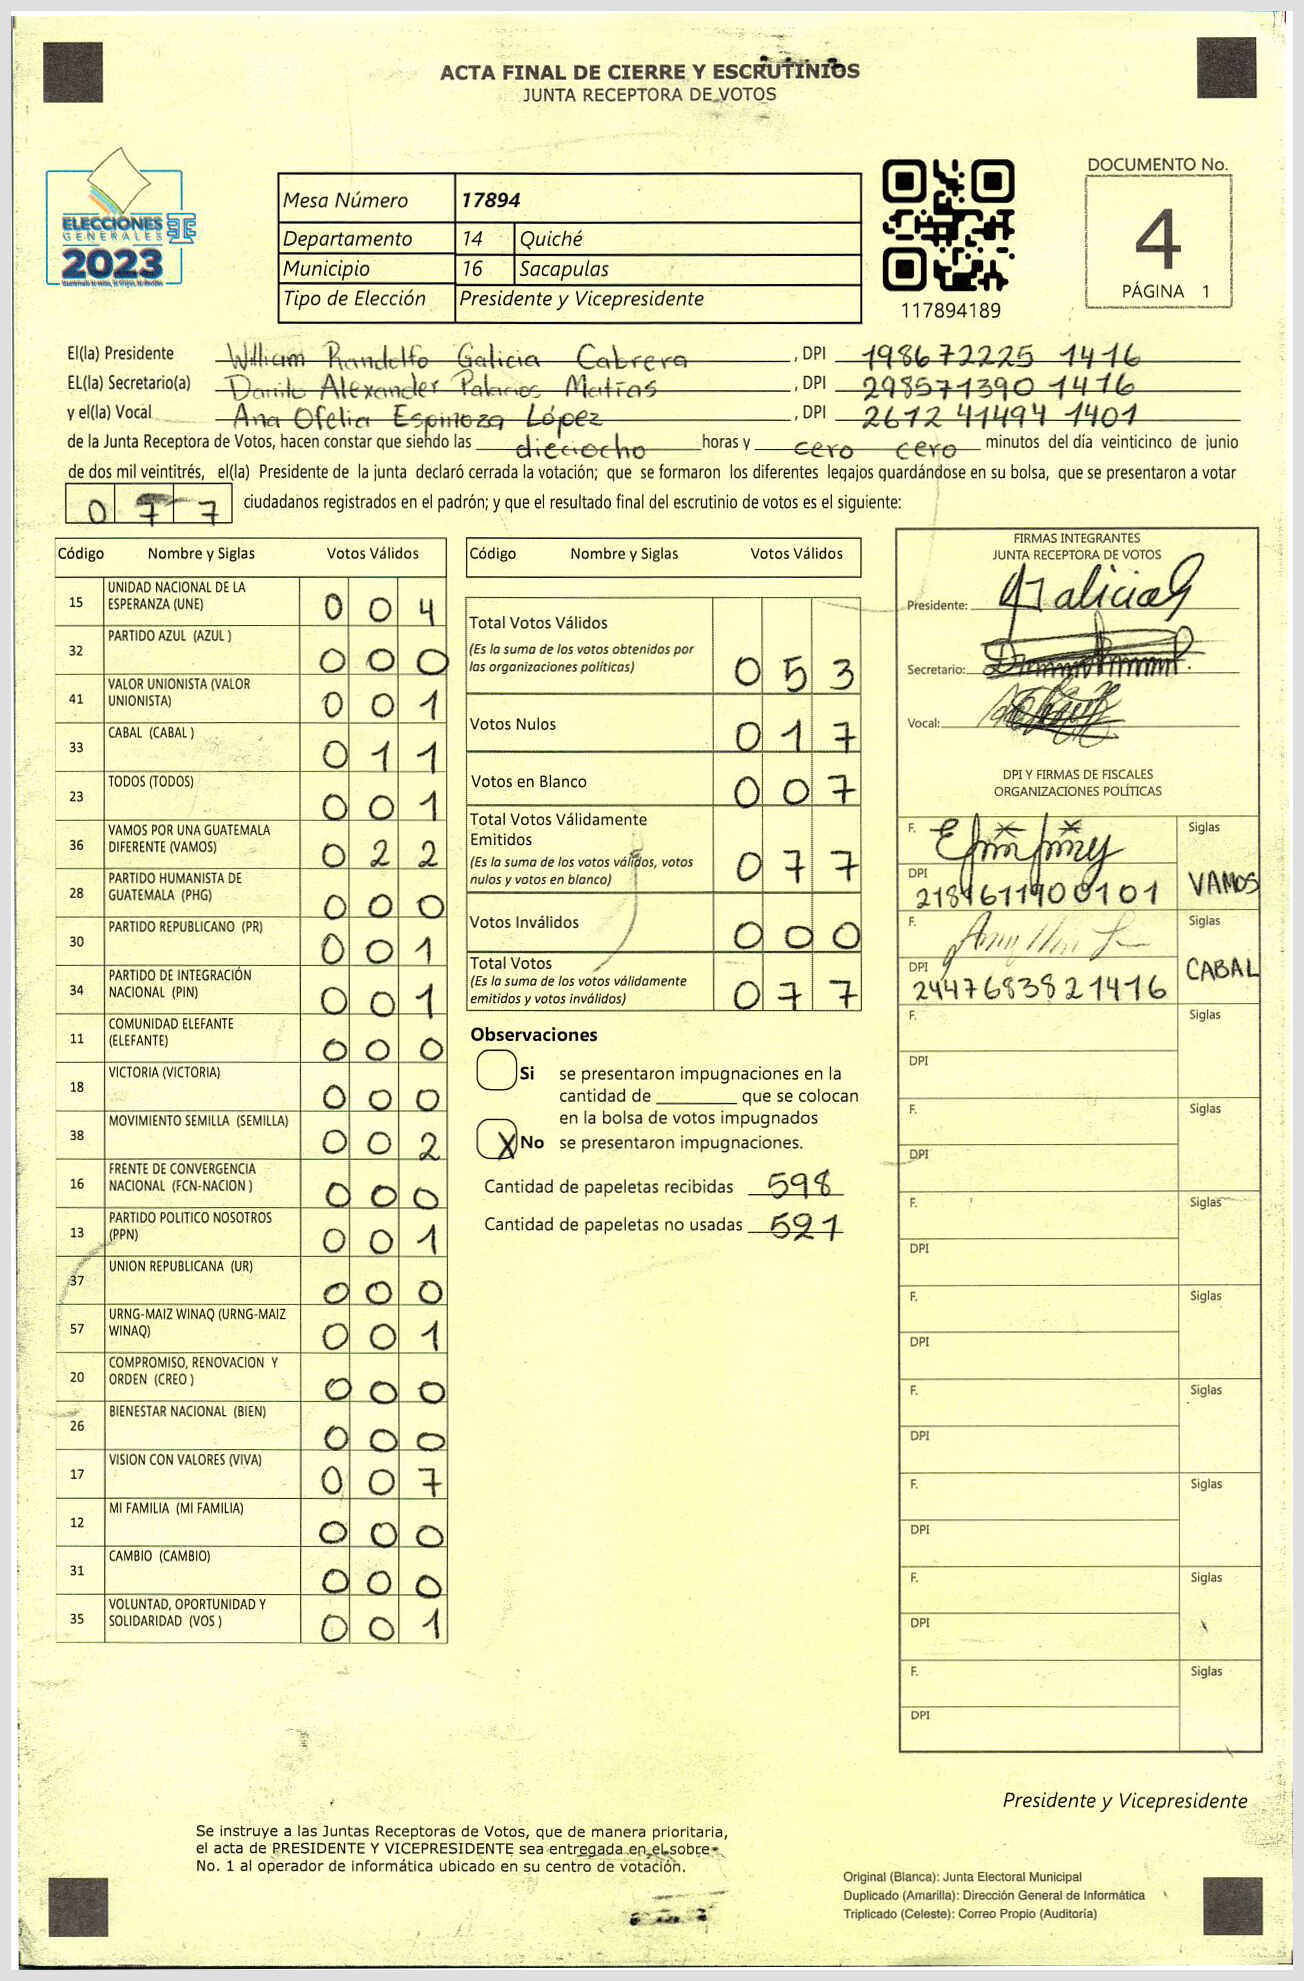 ACTA FINAL DE CIERRE Y ESCRUTINIOS
JUNTA RECEPTORA DE VOTOS
ELECCIONES
GENERALES
2023
Mesa Número 17894
Departamento 14 Quiché
Municipio 16 Sacapulas
Tipo de Elección Presidente y Vicepresidente
117894189
DOCUMENTO No.
4
PÁGINA 1
El(la) Presidente William Randolfo Galicia Cabrera, DPI 198672225 1416
EL(la) Secretario(a) Danilo Alexander Palacios Matías, DPI 298571390 1416
y el(la) Vocal Ana Ofelia Espinoza López, DPI 2612 41494 1401
de la Junta Receptora de Votos, hacen constar que siendo las dieciocho horas y cero cero minutos del día veinticinco de junio
de dos mil veintitrés, el(la) Presidente de la junta declaró cerrada la votación; que se formaron los diferentes legajos quardándose en su bolsa, que se presentaron a votar
0 7 7 ciudadanos registrados en el padrón; y que el resultado final del escrutinio de votos es el siguiente:
Código Nombre y Siglas Votos Válidos
15 UNIDAD NACIONAL DE LA
ESPERANZA (UNE) 0 0 4
32 PARTIDO AZUL (AZUL ) 0 0 0
41 VALOR UNIONISTA (VALOR
UNIONISTA) 0 0 1
33 CABAL (CABAL ) 0 1 1
23 TODOS (TODOS) 0 0 1
36 VAMOS POR UNA GUATEMALA
DIFERENTE (VAMOS) 0 2 2
28 PARTIDO HUMANISTA DE
GUATEMALA (PHG) 0 0 0
30 PARTIDO REPUBLICANO (PR) 0 0 1
34 PARTIDO DE INTEGRACIÓN
NACIONAL (PIN) 0 0 1
11 COMUNIDAD ELEFANTE
(ELEFANTE) 0 0 0
18 VICTORIA (VICTORIA) 0 0 0
38 MOVIMIENTO SEMILLA (SEMILLA) 0 0 2
16 FRENTE DE CONVERGENCIA
NACIONAL (FCN-NACION ) 0 0 0
13 PARTIDO POLITICO NOSOTROS
(PPN) 0 0 1
37 UNION REPUBLICANA (UR) 0 0 0
57 URNG-MAIZ WINAQ (URNG-MAIZ
WINAQ) 0 0 1
20 COMPROMISO, RENOVACION Y
ORDEN (CREO ) 0 0 0
26 BIENESTAR NACIONAL (BIEN) 0 0 0
17 VISION CON VALORES (VIVA) 0 0 7
12 MI FAMILIA (MI FAMILIA) 0 0 0
31 CAMBIO (CAMBIO) 0 0 0
35 VOLUNTAD, OPORTUNIDAD Y
SOLIDARIDAD (VOS ) 0 0 1
Código Nombre y Siglas Votos Válidos
Total Votos Válidos
(Es la suma de los votos obtenidos por
las organizaciones políticas) 0 5 3
Votos Nulos 0 1 7
Votos en Blanco 0 0 7
Total Votos Válidamente
Emitidos
(Es la suma de los votos válidos, votos
nulos y votos en blanco) 0 7 7
Votos Inválidos 0 0 0
Total Votos
(Es la suma de los votos válidamente
emitidos y votos inválidos) 0 7 7
Observaciones
Si se presentaron impugnaciones en la
cantidad de ________ que se colocan
en la bolsa de votos impugnados
X No se presentaron impugnaciones.
Cantidad de papeletas recibidas 598
Cantidad de papeletas no usadas 521
FIRMAS INTEGRANTES
JUNTA RECEPTORA DE VOTOS
Presidente: Galicia
Secretario:
Vocal:
DPI Y FIRMAS DE FISCALES
ORGANIZACIONES POLÍTICAS
F. Siglas
DPI 2184611900101 VAMOS
F. Siglas
DPI 2447683821416 CABAL
F. Siglas
DPI
F. Siglas
DPI
F. Siglas
DPI
F. Siglas
DPI
F. Siglas
DPI
F. Siglas
DPI
F. Siglas
DPI
F. Siglas
DPI
Presidente y Vicepresidente
Se instruye a las Juntas Receptoras de Votos, que de manera prioritaria,
el acta de PRESIDENTE Y VICEPRESIDENTE sea entregada en el sobre
No. 1 al operador de informática ubicado en su centro de votación.
Original (Blanca): Junta Electoral Municipal
Duplicado (Amarilla): Dirección General de Informática
Triplicado (Celeste): Correo Propio (Auditoría)